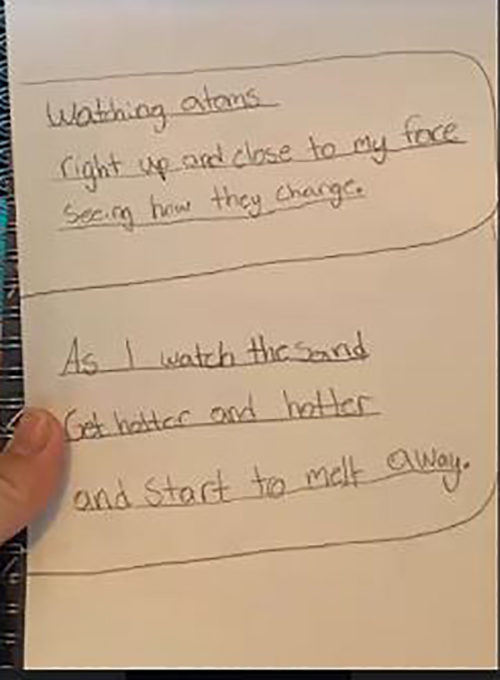 Watching atoms
right up and close to my face
Seeing how they change.
As I watch the sand
Get hotter and hotter
and start to melt away.